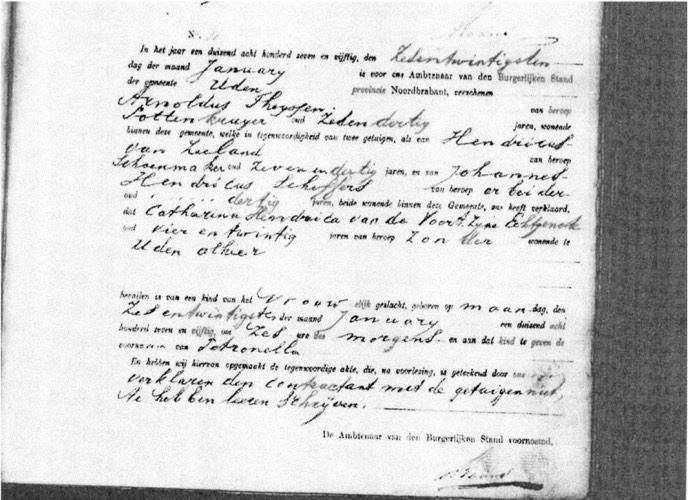 No.
In het jaar een duizend acht honderd zeven en vijftig, den Zesentwintigsten
dag der maand January is voor ons Ambtenaar van den Burgerlijken Stand
der gemeente Uden provincie Noordbrabant, verschenen
Arnoldus Theyssen van beroep
Pottenkramer oud Zesendertig jaren, wonende
binnen deze gemeente, welke in tegenwoordigheid van twee getuigen, als van Hendricus
van Zeeland van beroep
Schoenmaker oud Zeven en dertig jaren, en van Johannes
Hendricus Scheffers van beroep arbeider
oud dertig jaren, beide wonende binnen deze Gemeente, ons heeft verklaard,
dat Catharina Hendrica van de Voort Zyne Echtgenoote
oud vier en twintig jaren van beroep Zonder wonende te
Uden alhier
bevallen is van een kind van het Vrouwelijk geslacht, geboren op maandag, den
Zesentwintigsten der maand January een duizend acht
honderd zeven en vijftig, om Zes ure des morgens en aan dat kind te geven de
voornaam van Petronella
En hebben wij hiervan opgemaakt de tegenwoordige akte, die, na voorlezing, is geteekend door ons
verklaren den contractant met de getuigen niet
te hebben leeren Schryven.
De Ambtenaar van den Burgerlijken Stand voornoemd,